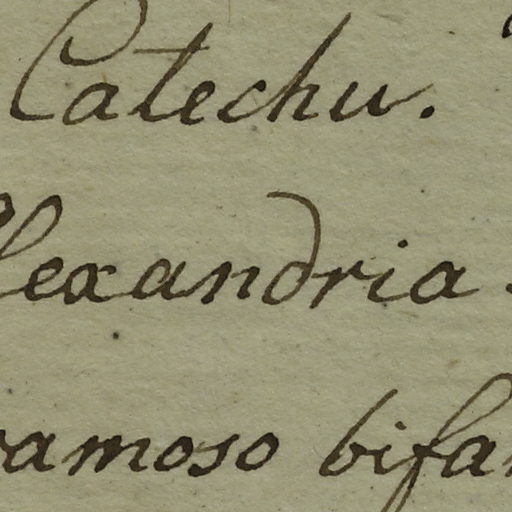 Catechu.
lexandria.
ramoso bifar